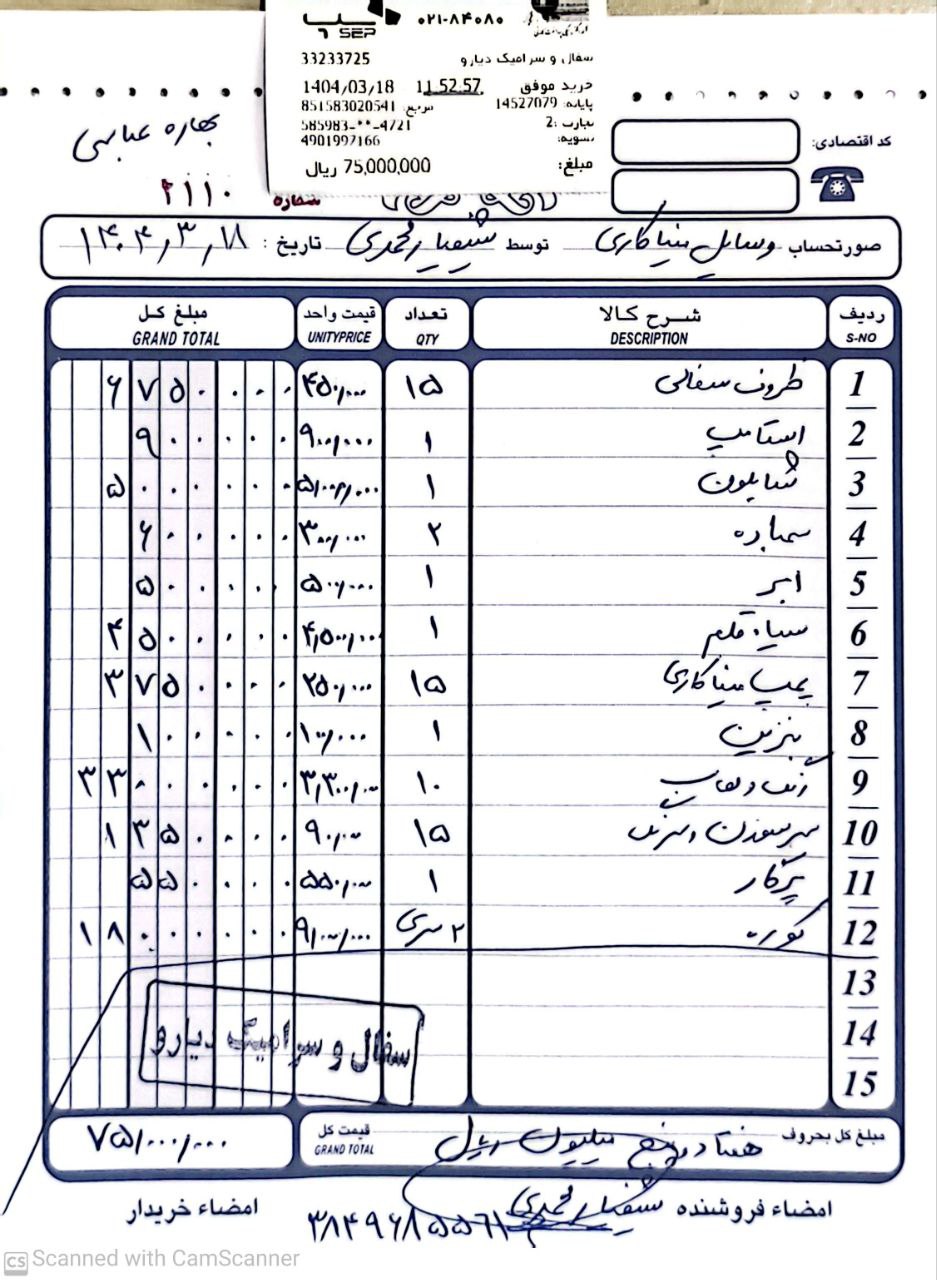 سپ SEP ۰۲۱-۸۴۰۸۰
سفال و سرامیک دیارو 33233725
خرید موفق 11:52:57 1404/03/18
پایانه: 14527079 مرجع: 851583020541
تجارت: 2 585983-**-4721
تسویه: 4901997166
مبلغ: 75,000,000 ریال
کد اقتصادی:
بهاره عباسی
شماره ۲۱۱۰
صورتحساب وسایل میناکاری توسط تاریخ: ۱۴۰۴/۳/۱۸
ردیف S-NO شرح کالا DESCRIPTION تعداد QTY قیمت واحد UNITYPRICE مبلغ کل GRAND TOTAL
1 ظروف سفالی ۱۵ ۴۵۰/۰۰۰ ۶۷۵۰۰۰۰
2 استامپ ۱ ۹۰۰/۰۰۰ ۹۰۰۰۰۰
3 شابلون ۱ ۵/۰۰۰/۰۰۰ ۵۰۰۰۰۰۰
4 سمباده ۲ ۳۰۰/۰۰۰ ۶۰۰۰۰۰
5 ابر ۱ ۵۰۰/۰۰۰ ۵۰۰۰۰۰
6 سیاه قلم ۱ ۴,۵۰۰/۰۰۰ ۴۵۰۰۰۰۰
7 پمپ میناکاری ۱۵ ۲۵۰/۰۰۰ ۳۷۵۰۰۰۰
8 بنزین ۱ ۱۰۰/۰۰۰ ۱۰۰۰۰۰
9 رنگ و لعاب ۱۰ ۳,۳۰۰/۰۰۰ ۳۳۰۰۰۰۰۰
10 سرسوزن و سرنگ ۱۵ ۹۰/۰۰۰ ۱۳۵۰۰۰۰
11 پرگار ۱ ۵۵۰/۰۰۰ ۵۵۰۰۰۰
12 کوره ۲ سری ۹/۰۰۰/۰۰۰ ۱۸۰۰۰۰۰۰
13
14
15
سفال و سرامیک دیارو
مبلغ کل بحروف هفتاد و پنج میلیون ریال قیمت کل GRAND TOTAL ۷۵/۰۰۰/۰۰۰
امضاء فروشنده امضاء خریدار
CS Scanned with CamScanner